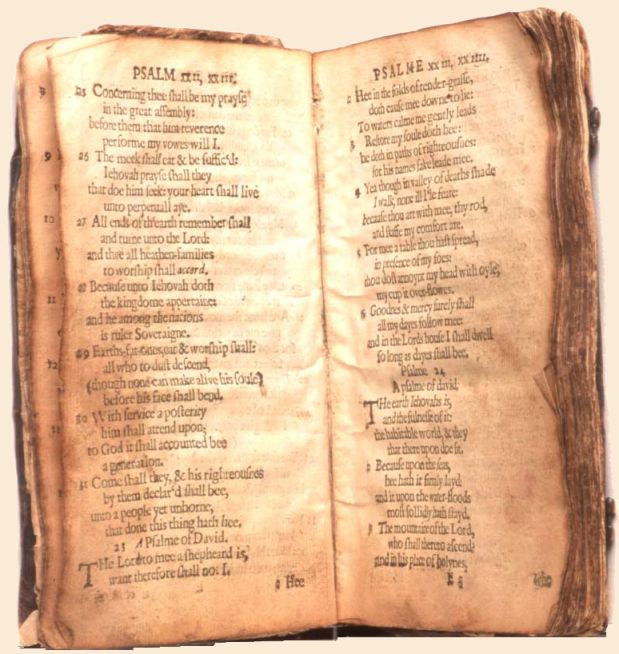 PSALM xxii, xxiii.
25 Concerning thee shall be my prayse
in the great assembly:
before them that him reverence
performe my vowes will I.
26 The meek shall eat & be suffic'd:
Iehovah prayse shall they
that doe him seek: your heart shall live
unto perpetuall aye.
27 All ends of th'earth remember shall
and turne unto the Lord:
and thee all heathen-families
to worship shall accord,
28 Because unto Iehovah doth
the kingdome appertaine:
and he among the nations
is ruler Soveraigne.
29 Earths-fat-ones, eat & worship shall:
all who to dust descend,
(though none can make alive his soule)
before his face shall bend.
30 With service a posterity
him shall attend upon;
to God it shall accounted bee
a generation.
31 Come shall they, & his righteousnes
by them declar'd shall bee,
unto a people yet unborne,
that done this thing hath hee.
23 A Psalme of David.
THe Lord to mee a shepheard is,
want therefore shall not I.
2 Hee
PSALME xxiii, xxiiii.
2 Hee in the folds of tender-grasse,
doth cause mee downe to lie:
To waters calme me gently leads
3 Restore my soule doth hee:
he doth in paths of righteousnes:
for his names sake leade mee.
4 Yea though in valley of deaths shade
I walk, none ill I'le feare:
because thou art with mee, thy rod,
and staffe my comfort are.
5 For mee a table thou hast spread,
in presence of my foes:
thou dost annoynt my head with oyle,
my cup it over-flowes.
6 Goodnes & mercy surely shall
all my dayes follow mee:
and in the Lords house I shall dwell
so long as dayes shall bee.
Psalme 24
A psalme of david.
THe earth Iehovahs is,
and the fulnesse of it:
the habitable world, & they
that there upon doe sit.
2 Because upon the seas,
hee hath it firmly layd:
and it upon the water-floods
most sollidly hath stayd,
3 The mountaine of the Lord,
who shall thereto ascend?
and in his place of holynes,
Who